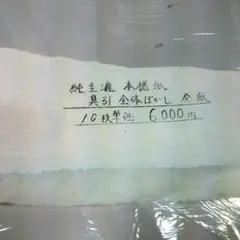 純圭漉 本鳥子紙
具引 全体ぼかし 合紙
10枚単価 6,000円